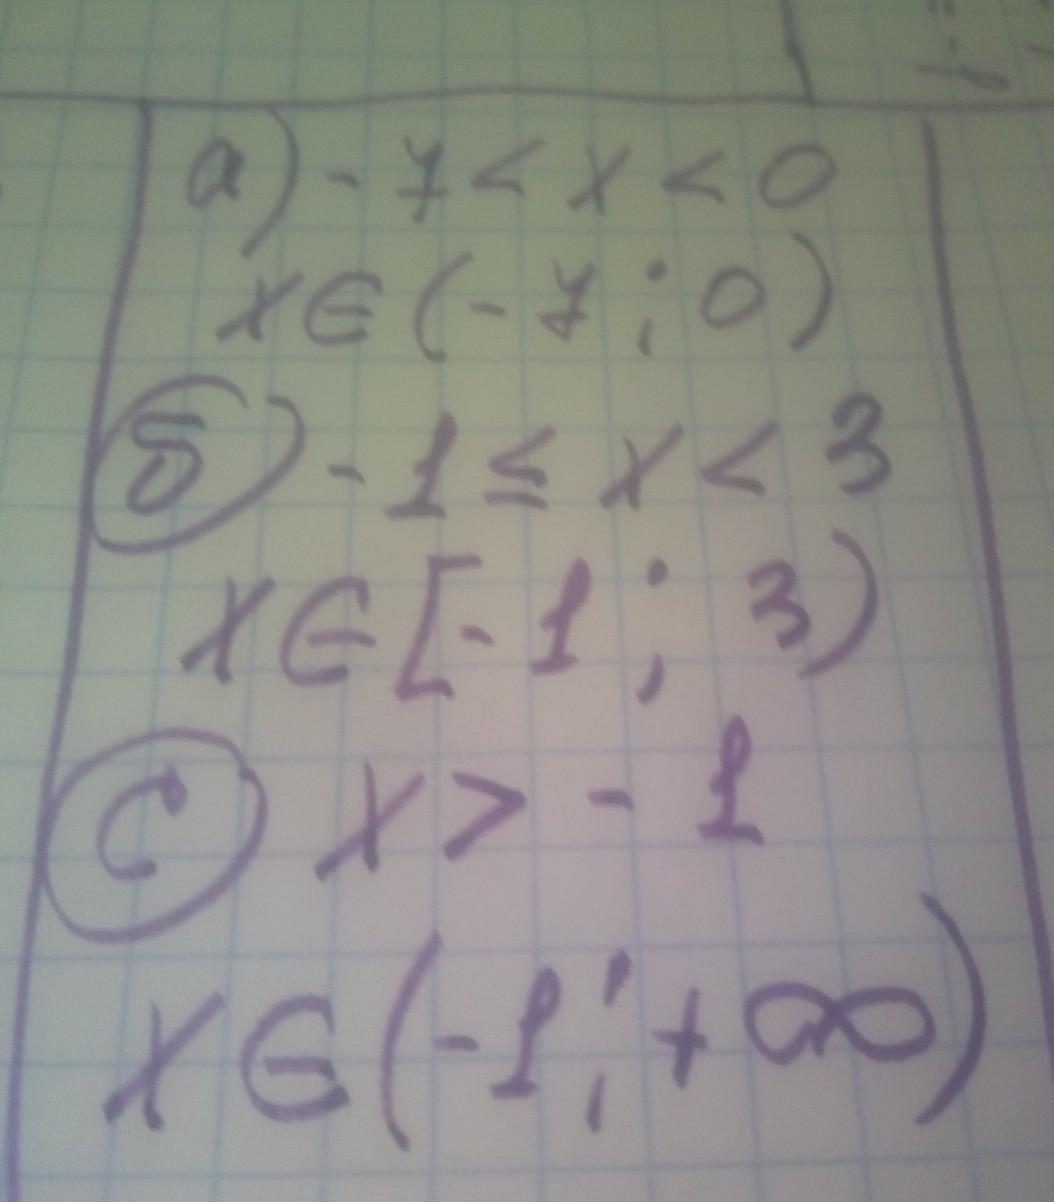 а) -7 < x < 0
x ∈ (-7; 0)
б) -1 ≤ x < 3
x ∈ [-1; 3)
с) x > -1
x ∈ (-1; +∞)